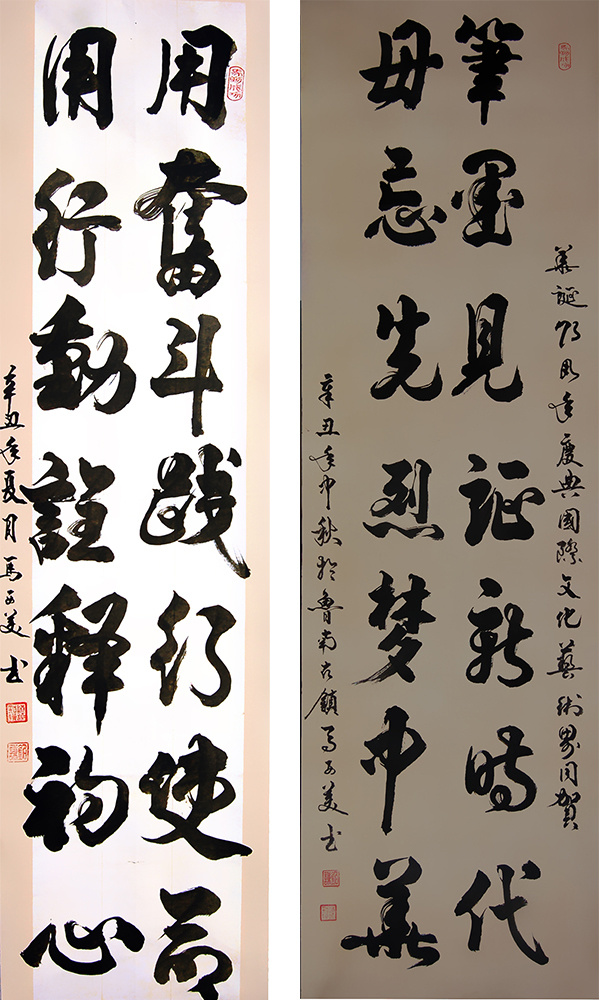 用奮斗踐行使命
用行動註释初心
辛丑年夏月馬美书
筆墨見証新時代
毋忘先烈梦中華
華誕周年慶典國際文化藝術界同賀
辛丑年中秋於魯南古鎮馬美书